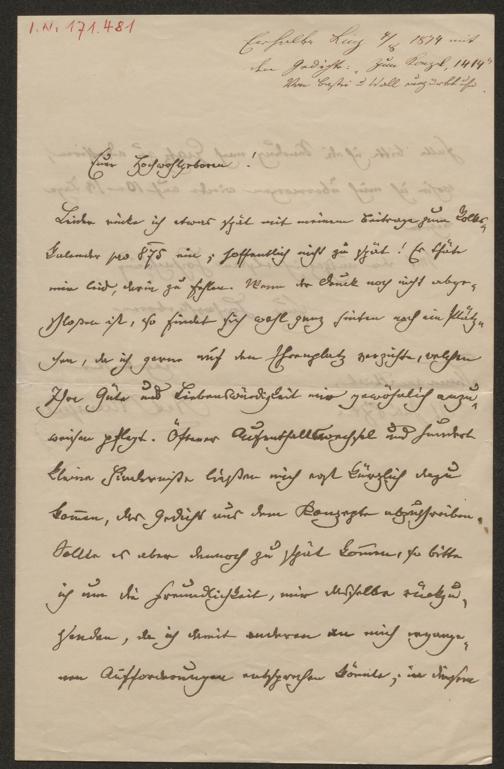 I.N. 171.481
Erhalten Linz 4/8 1874 mit
dem Gedichte: "Zum
Euer Hochwohlgeboren!
Leider rücke ich etwas spät mit meinem Beitrage zum Volks-
kalender pro 875 ein; hoffentlich nicht zu spät! Es thäte
mir leid, darin zu fehlen. Wenn der Druck noch nicht abge-
schloßen ist, so findet sich wohl ganz hinten noch ein Plätz-
chen, da ich gerne auf den Ehrenplatz verzichte, welchen
Ihre Güte und Liebenswürdigkeit mir gewöhnlich anzu-
weisen pflegt. Öfterer Aufenthaltswechsel und hundert
kleine Hinderniße ließen mich erst kürzlich dazu
kommen, das Gedicht aus dem Konzepte abzuschreiben.
Sollte es aber dennoch zu spät kommen, so bitte
ich um die Freundlichkeit, mir dasselbe rückzu-
senden, da ich damit anderen an mich ergange-
nen Aufforderungen entsprechen könnte; in diesem